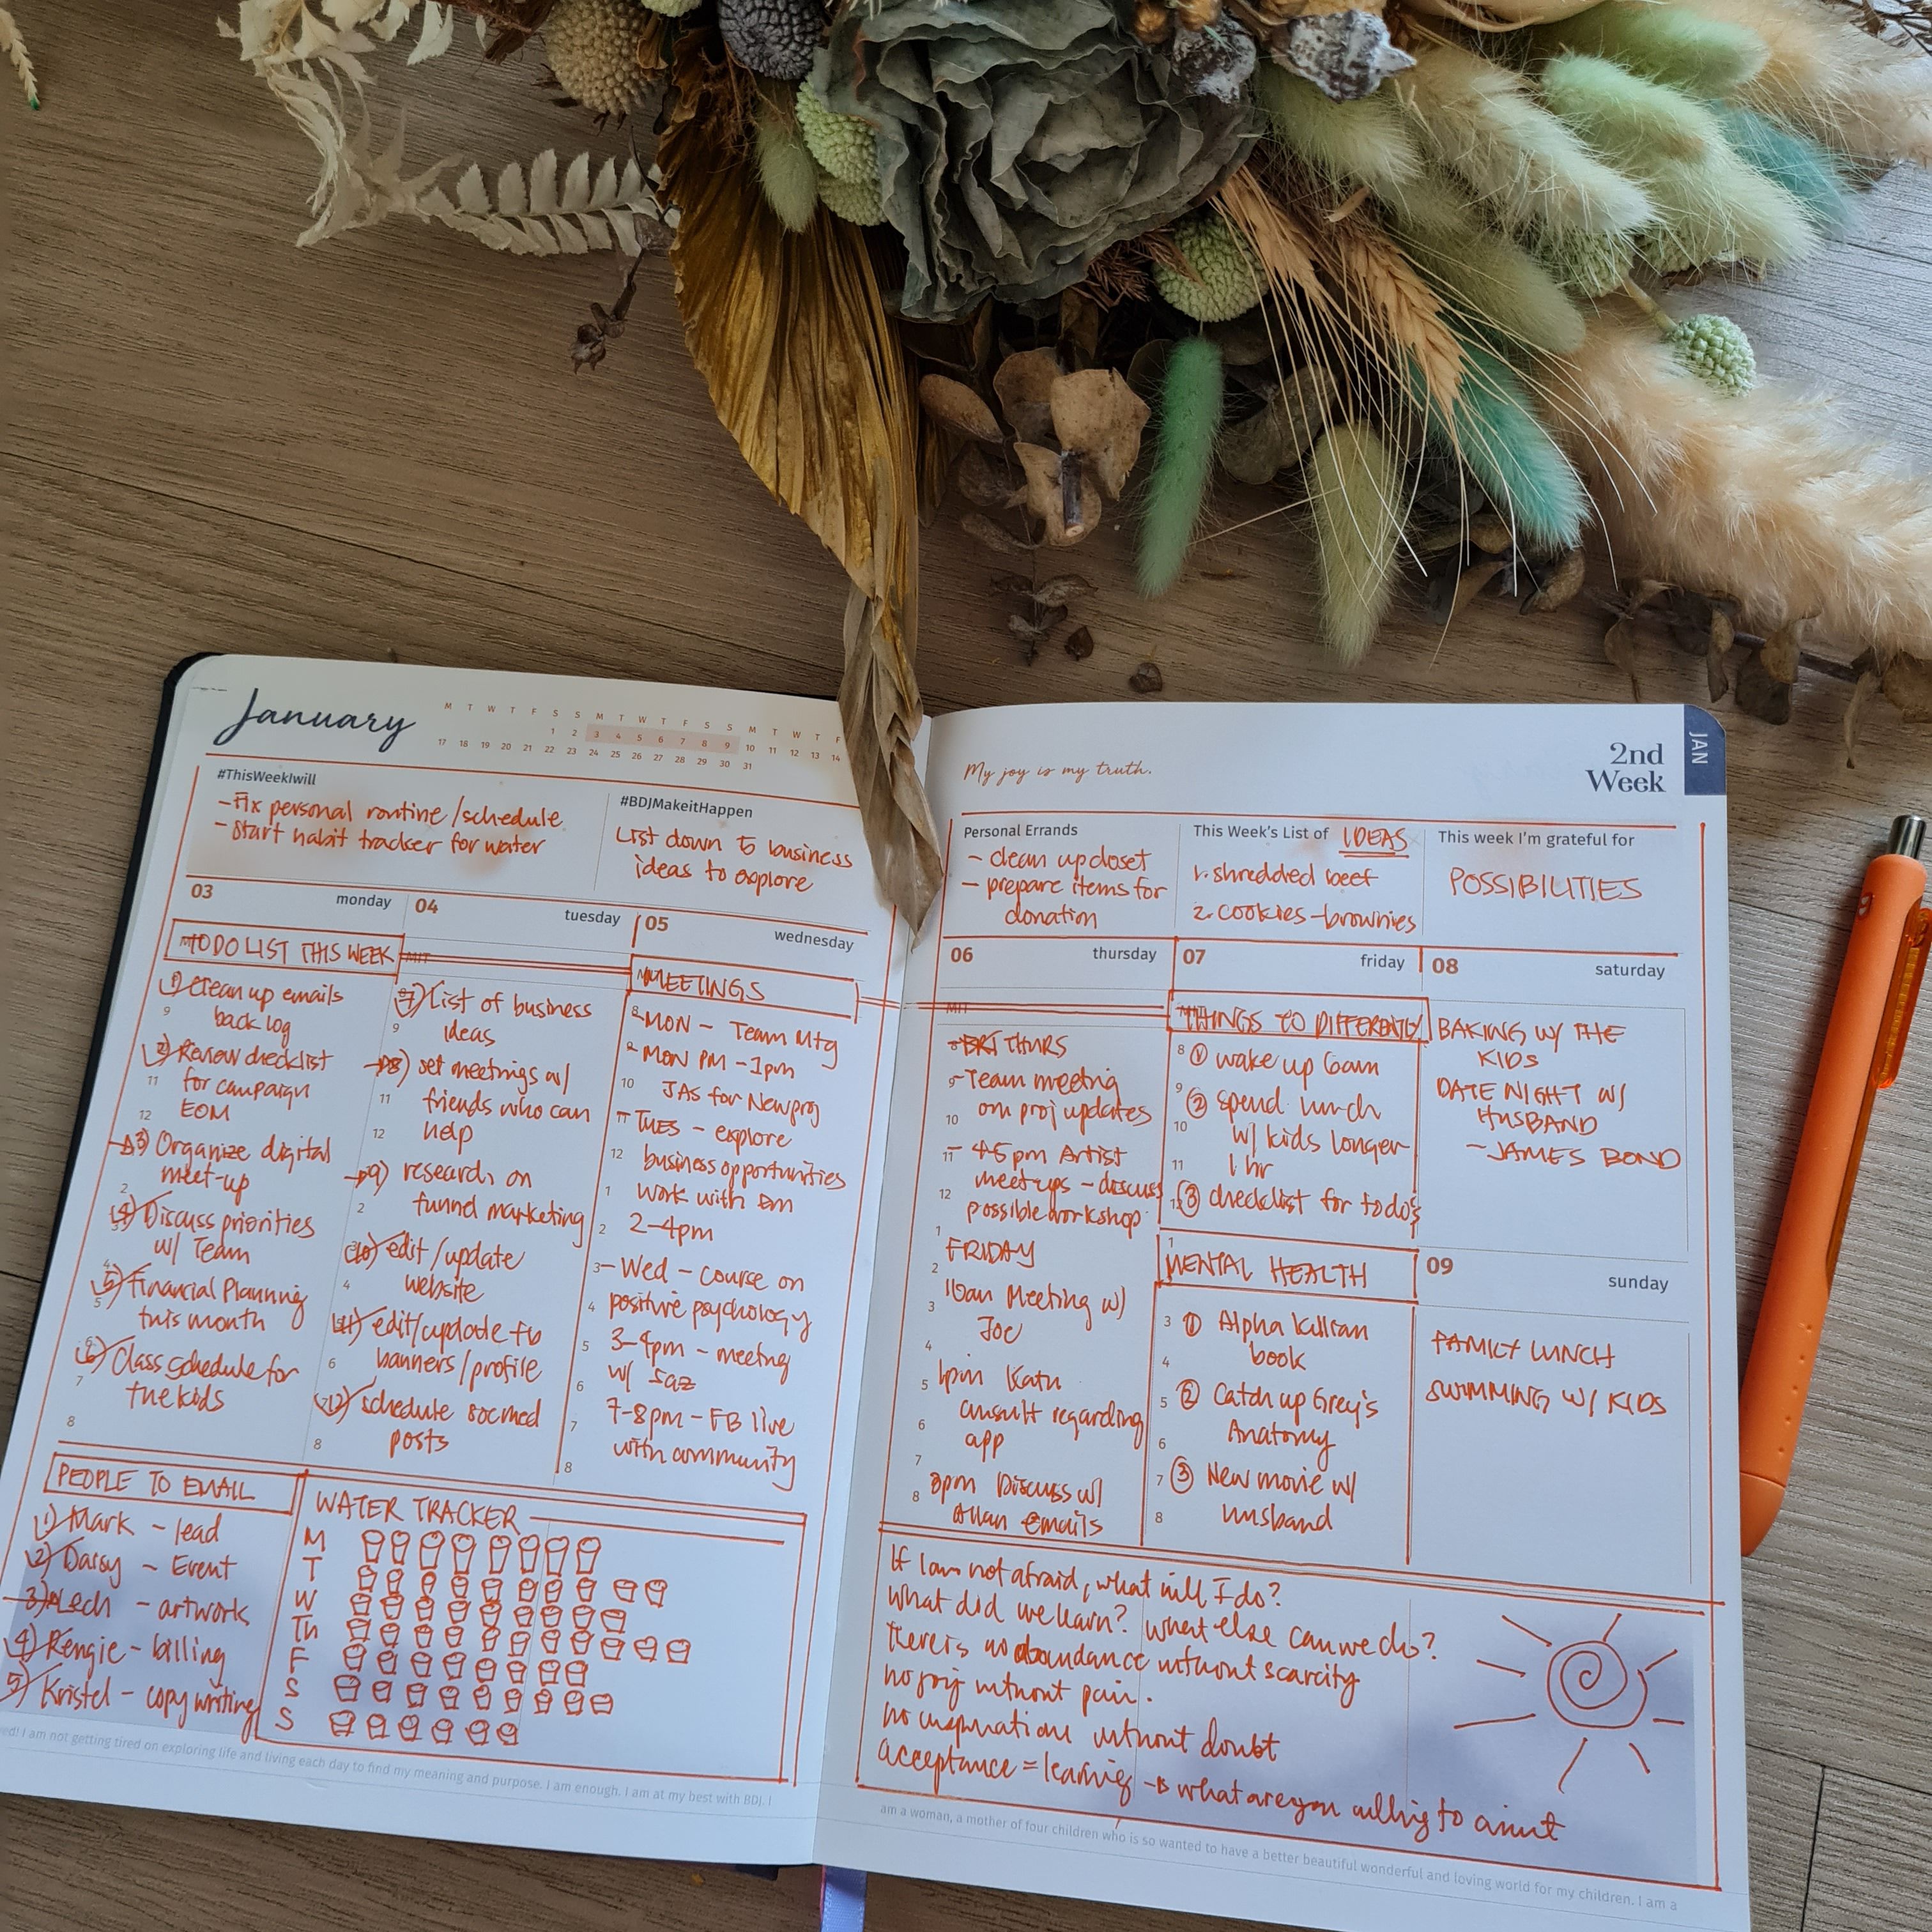 January
M T W T F S S M T W T F S S M T W T F
1 2 3 4 5 6 7 8 9 10 11 12 13 14
17 18 19 20 21 22 23 24 25 26 27 28 29 30 31
#ThisWeekIwill
- Fix personal routine/schedule
- Start habit tracker for water
#BDJMakeitHappen
List down 5 business
ideas to explore
03 monday
04 tuesday
05 wednesday
TO DO LIST THIS WEEK
MIT
1) Clean up emails
back log
2) Review checklist
for campaign
EOM
3) Organize digital
meet-up
4) Discuss priorities
w/ Team
5) Financial Planning
this month
6) Class schedule for
the kids
7) List of business
ideas
8) set meetings w/
friends who can
help
9) research on
funnel marketing
10) edit/update
website
11) edit/update fb
banners/profile
12) schedule socmed
posts
MEETINGS
- MON - Team Mtg
- MON PM - 1pm
JAS for New proj
- TUES - explore
business opportunities
work with
2-4pm
- Wed - course on
positive psychology
3-4pm - meeting
w/ Saz
7-8pm - FB live
with community
PEOPLE TO EMAIL
1) Mark - lead
2) Daisy - Event
3) Lech - artworks
4) Rengie - billing
5) Kristel - copywriting
WATER TRACKER
M
T
W
Th
F
S
S
ed! I am not getting tired on exploring life and living each day to find my meaning and purpose. I am enough. I am at my best with BDJ. I
My joy is my truth.
2nd
Week
JAN
Personal Errands
- clean up closet
- prepare items for
donation
This Week's List of IDEAS
1. shredded beef
2. cookies - brownies
This week I'm grateful for
POSSIBILITIES
06 thursday
07 friday
08 saturday
MIT
THURS
- Team meeting
on proj updates
- 4-5pm Artist
meet-ups - discuss
possible workshop
FRIDAY
10am Meeting w/
Joe
1pm
consult regarding
app
3pm Discuss w/
Allan emails
THINGS TO DIFFERENTLY
① wake up 6am
② spend lunch
w/ kids longer
1 hr
③ checklist for to do's
MENTAL HEALTH
① Alpha Killian
book
② Catch up Grey's
Anatomy
③ New movie w/
husband
BAKING W/ THE
KIDS
DATE NIGHT W/
HUSBAND
- JAMES BOND
09 sunday
FAMILY LUNCH
SWIMMING W/ KIDS
If I am not afraid, what will I do?
What did we learn? What else can we do?
There is no abundance without scarcity
no joy without pain.
no inspiration without doubt
acceptance = learning → what are you willing to
am a woman, a mother of four children who is so wanted to have a better beautiful wonderful and loving world for my children. I am a